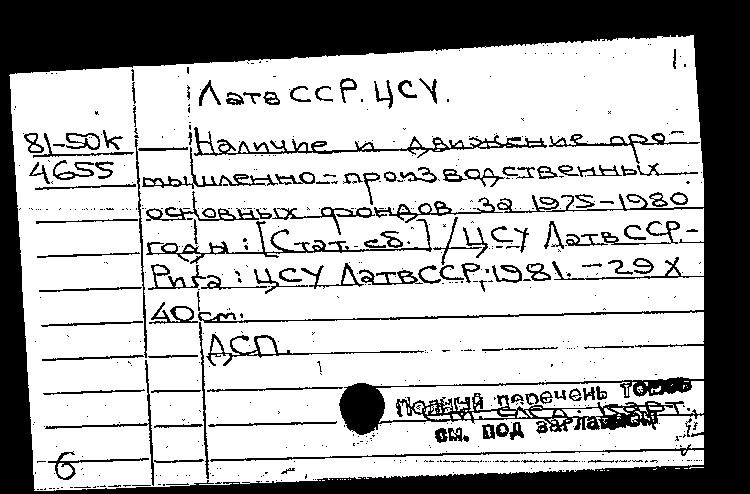 1.
Латв ССР. ЦСУ.
81-50к
4655
Наличие и движение про-
мышленно-производственных
основных фондов за 1975-1980
годы: [Стат. сб.] / ЦСУ Латв ССР.-
Рига: ЦСУ ЛатвССР, 1981. - 29 X
40 см.
ДСП.
Полный перечень томов
см. след. карт.
см. под заглавием
6